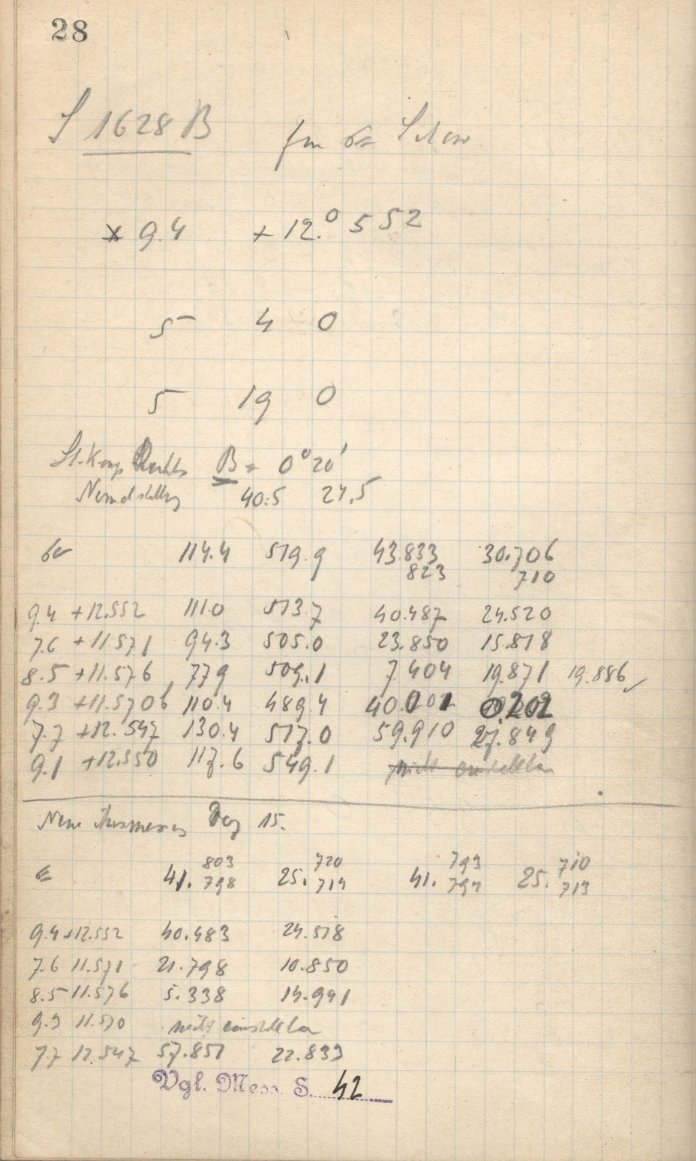 28
S 1628 B
x 9.4 +12.° 552
5 4 0
5 19 0
B = 0° 20'
40.5 24.5
114.4 519.9 43.833 30.706
823 710
9.4 +12.552 111.0 513.7 40.487 24.520
7.6 +11.571 94.3 505.0 23.850 15.818
8.5 +11.576 77.9 509.1 7.404 19.871 19.886 ✓
9.3 +11.5706 110.4 489.4 40.001 0.202
7.7 +12.547 130.4 517.0 59.910 27.849
9.1 +12.550 117.6 549.1 nicht einstellbar
Neue 15.
803 720 793 710
41. 798 25. 714 41. 797 25. 713
9.4 +12.552 40.483 24.518
7.6 11.571 21.798 10.850
8.5 11.576 5.338 14.991
9.3 11.570 nicht einstellbar
7.7 12.547 57.851 22.833
Vgl. Mess. S. 42